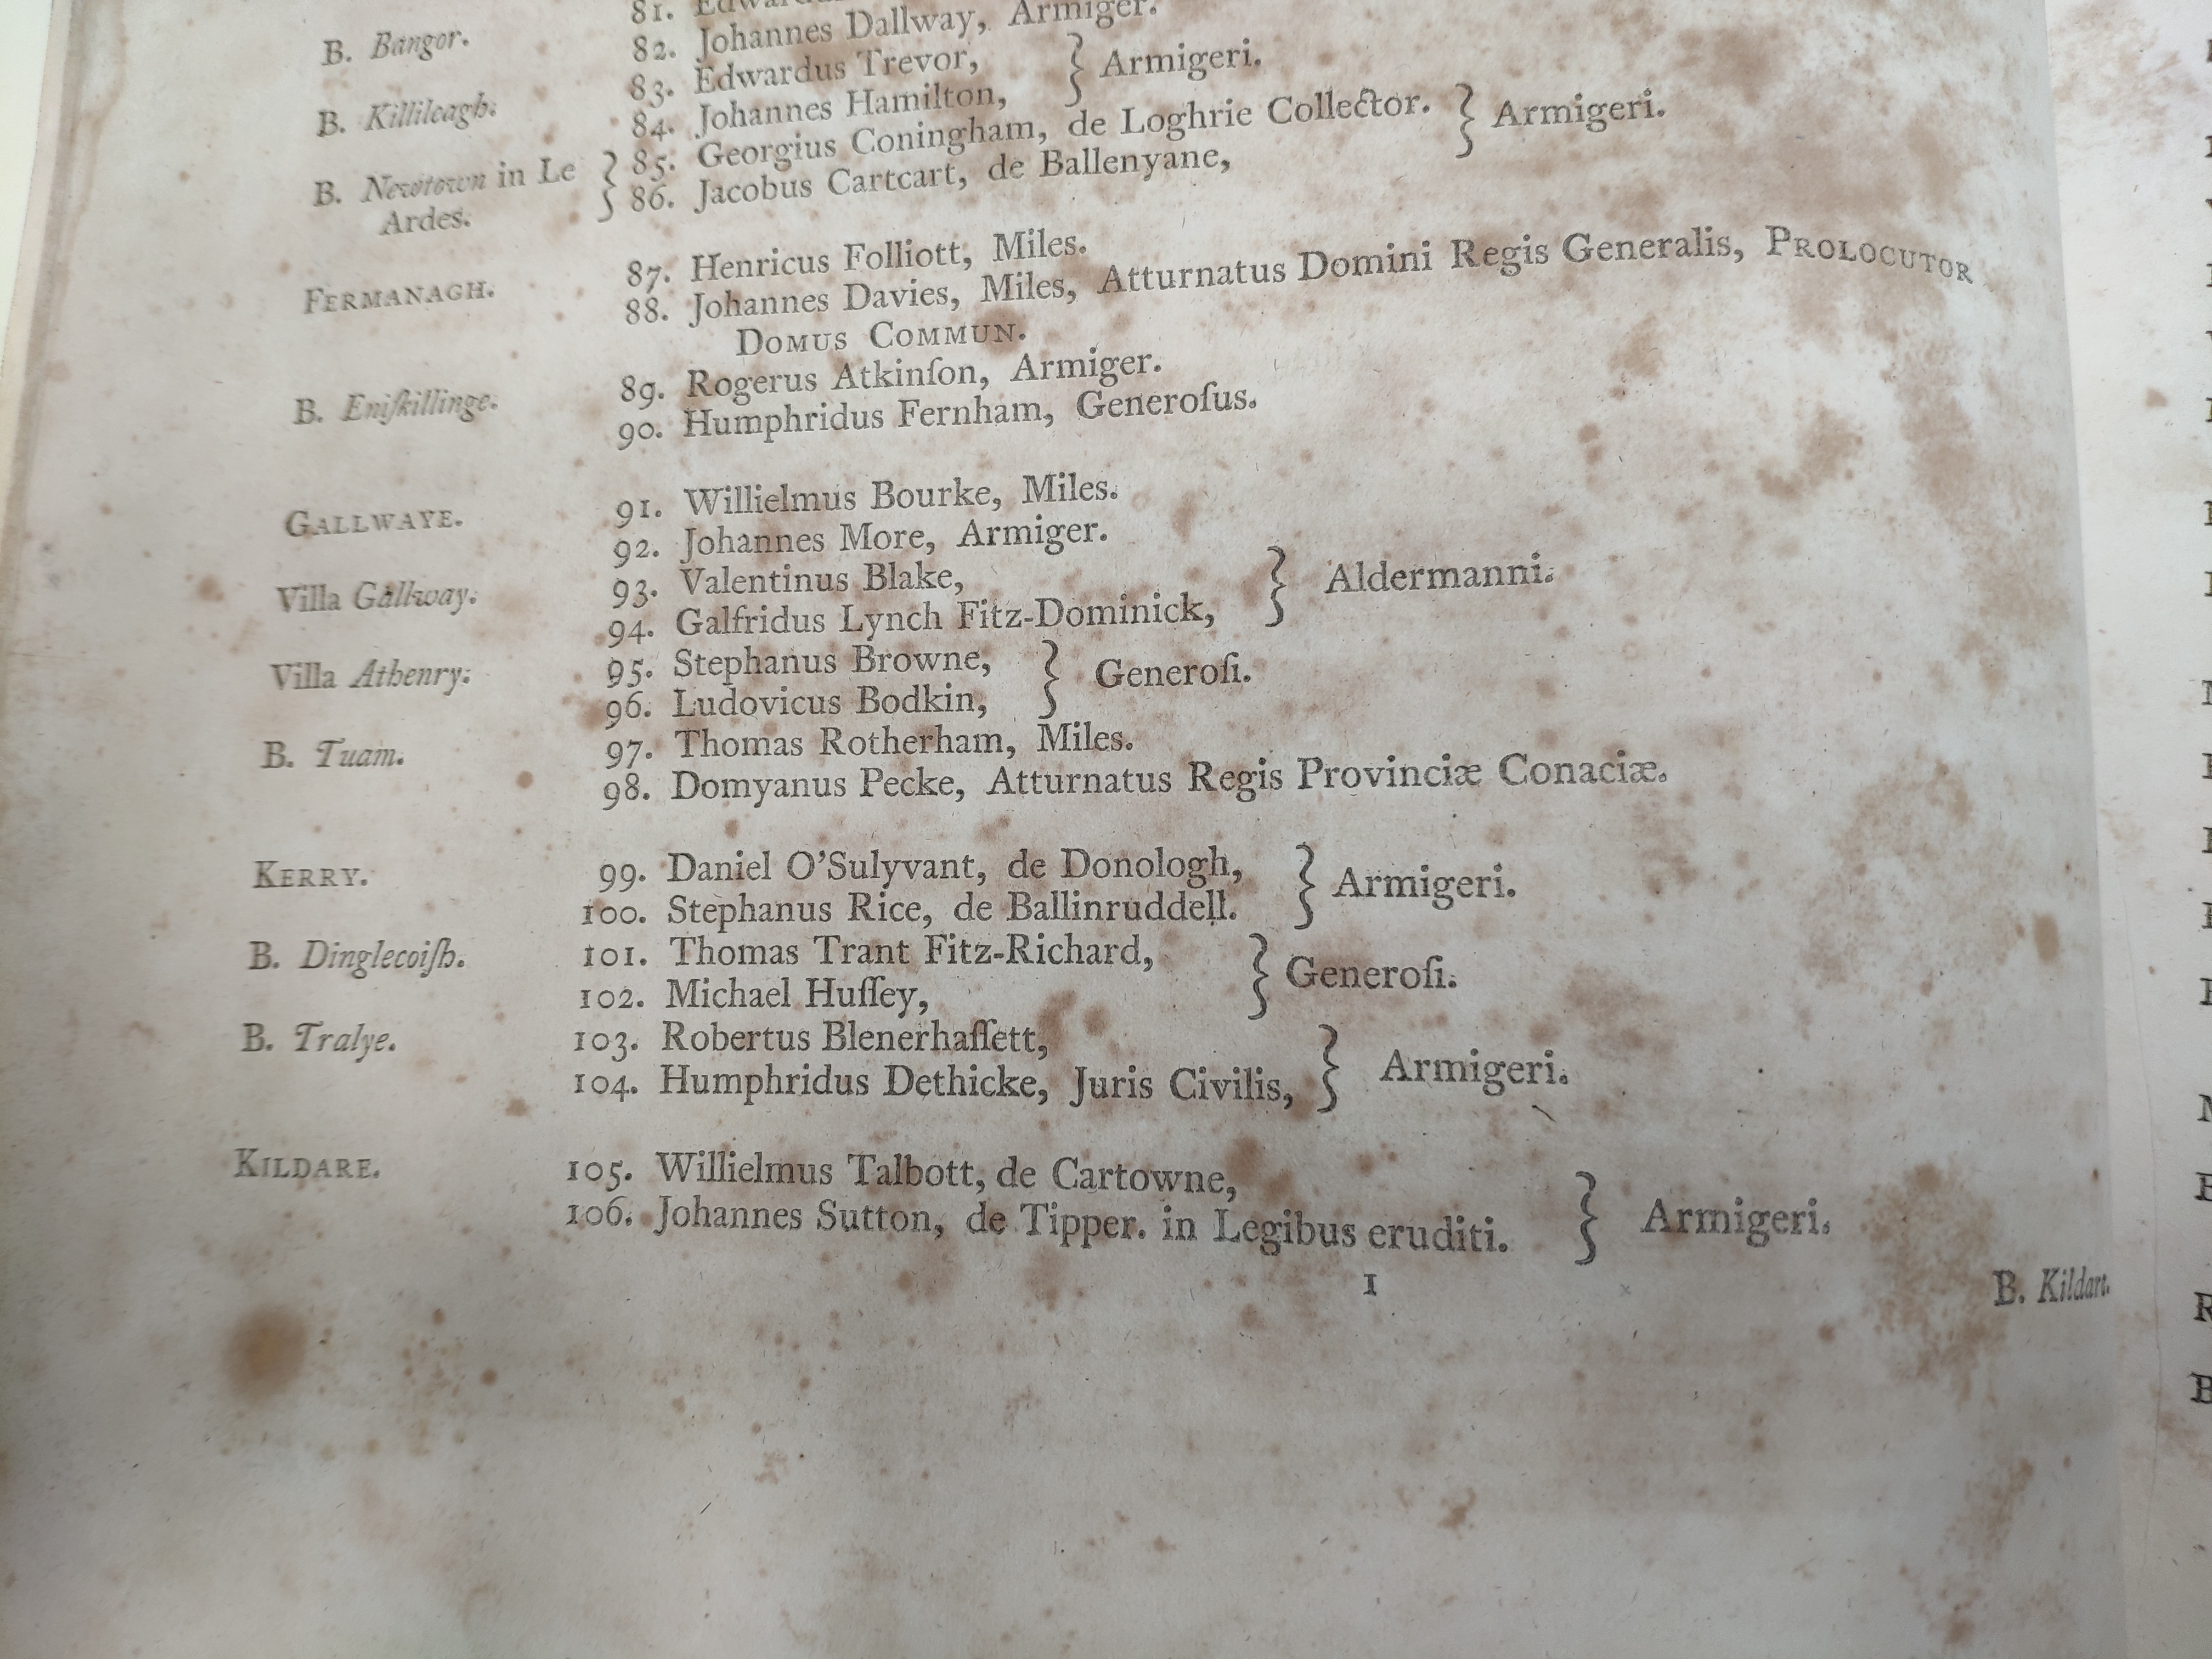 81.
B. Bangor. 82. Johannes Dallway, Armiger.
83. Edwardus Trevor, } Armigeri.
B. Killileagh. 84. Johannes Hamilton,
B. Newtown in Le Ardes. } 85. Georgius Coningham, de Loghrie Collector. } Armigeri.
86. Jacobus Cartcart, de Ballenyane,
FERMANAGH. 87. Henricus Folliott, Miles.
88. Johannes Davies, Miles, Atturnatus Domini Regis Generalis, PROLOCUTOR
DOMUS COMMUN.
B. Eniſkillinge. 89. Rogerus Atkinſon, Armiger.
90. Humphridus Fernham, Generoſus.
GALLWAYE. 91. Willielmus Bourke, Miles.
92. Johannes More, Armiger.
Villa Gallway. 93. Valentinus Blake, } Aldermanni.
94. Galfridus Lynch Fitz-Dominick,
Villa Athenry. 95. Stephanus Browne, } Generoſi.
96. Ludovicus Bodkin,
B. Tuam. 97. Thomas Rotherham, Miles.
98. Domyanus Pecke, Atturnatus Regis Provinciæ Conaciæ.
KERRY. 99. Daniel O'Sulyvant, de Donologh, } Armigeri.
100. Stephanus Rice, de Ballinruddell.
B. Dinglecoiſh. 101. Thomas Trant Fitz-Richard, } Generoſi.
102. Michael Huſſey,
B. Tralye. 103. Robertus Blenerhaſſett, } Armigeri.
104. Humphridus Dethicke, Juris Civilis,
KILDARE. 105. Willielmus Talbott, de Cartowne, } Armigeri.
106. Johannes Sutton, de Tipper. in Legibus eruditi.
1
B. Kildare.